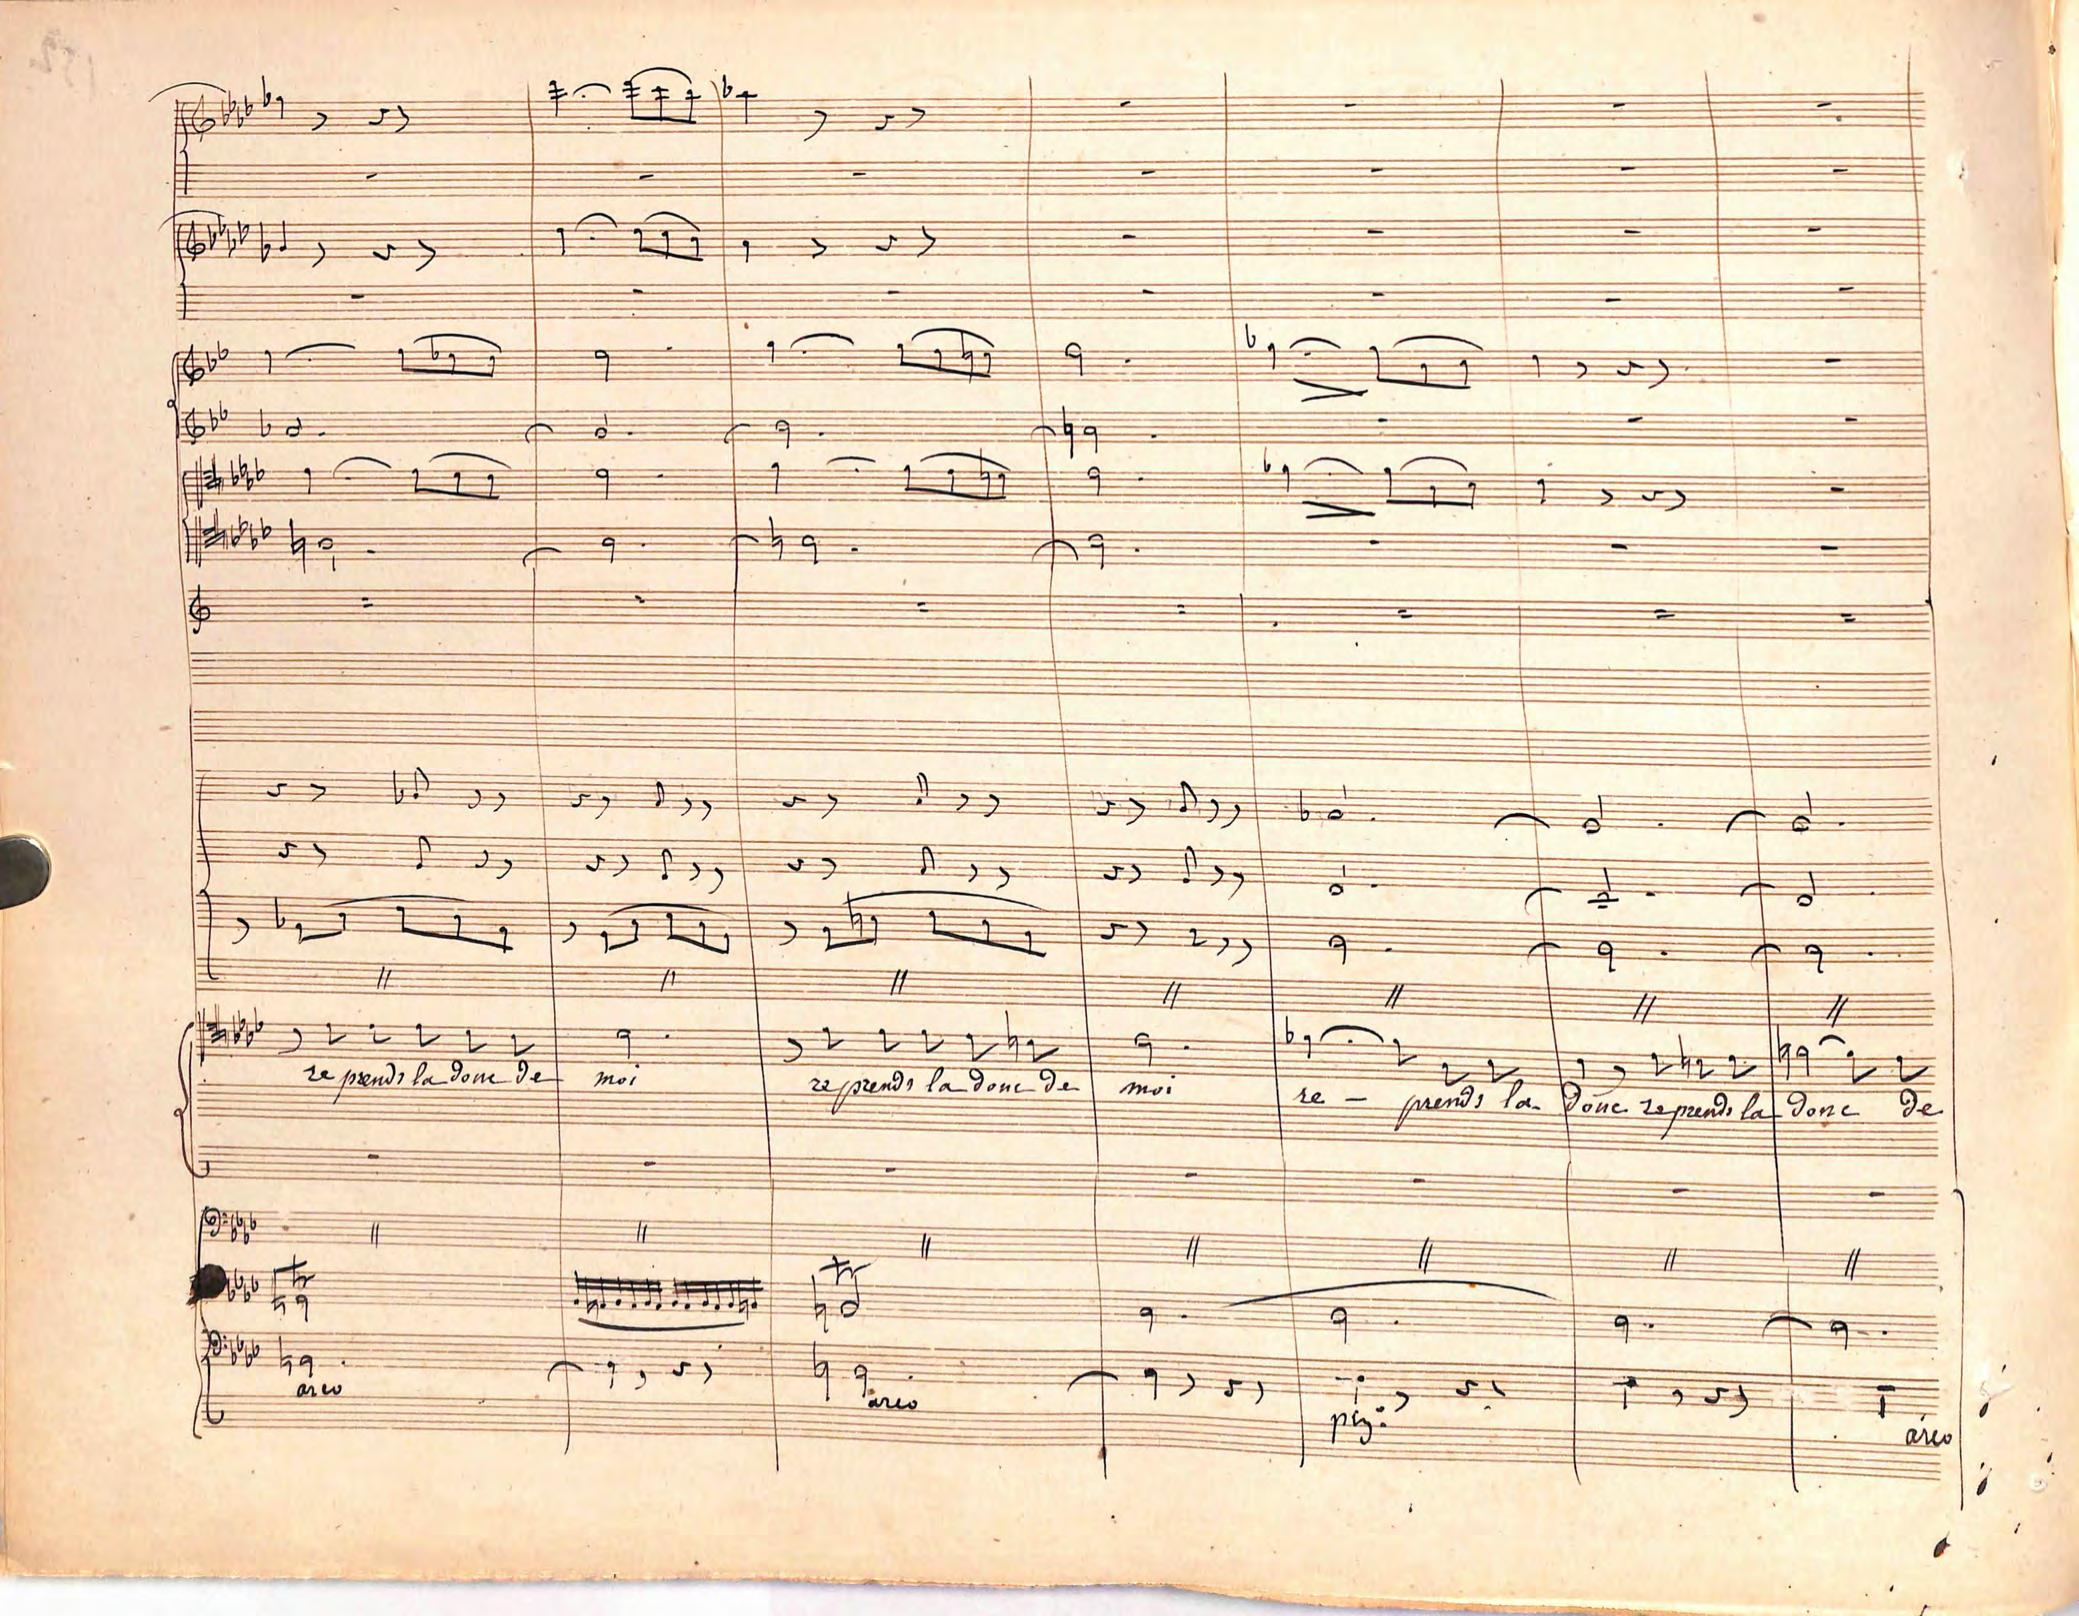 re prends la donc de moi re prends la donc de moi re – prends la donc re prends la donc de
arco arco piz: arco